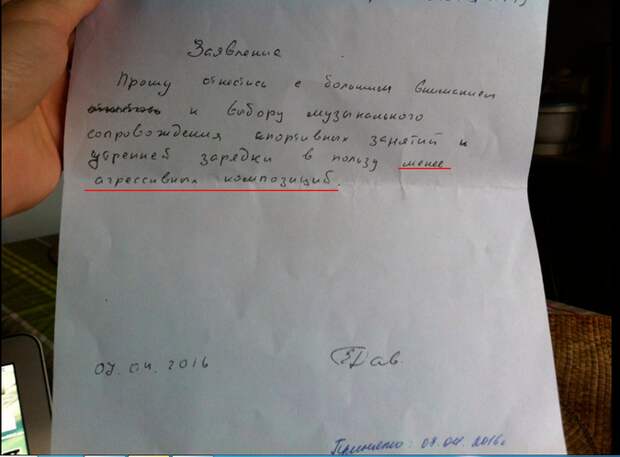 Заявление
Прошу отнестись с большим вниманием
к выбору музыкального
сопровождения спортивных занятий и
утренней зарядки в пользу менее
агрессивных композиций.
07.04.2016
Принято: 07.04.2016г